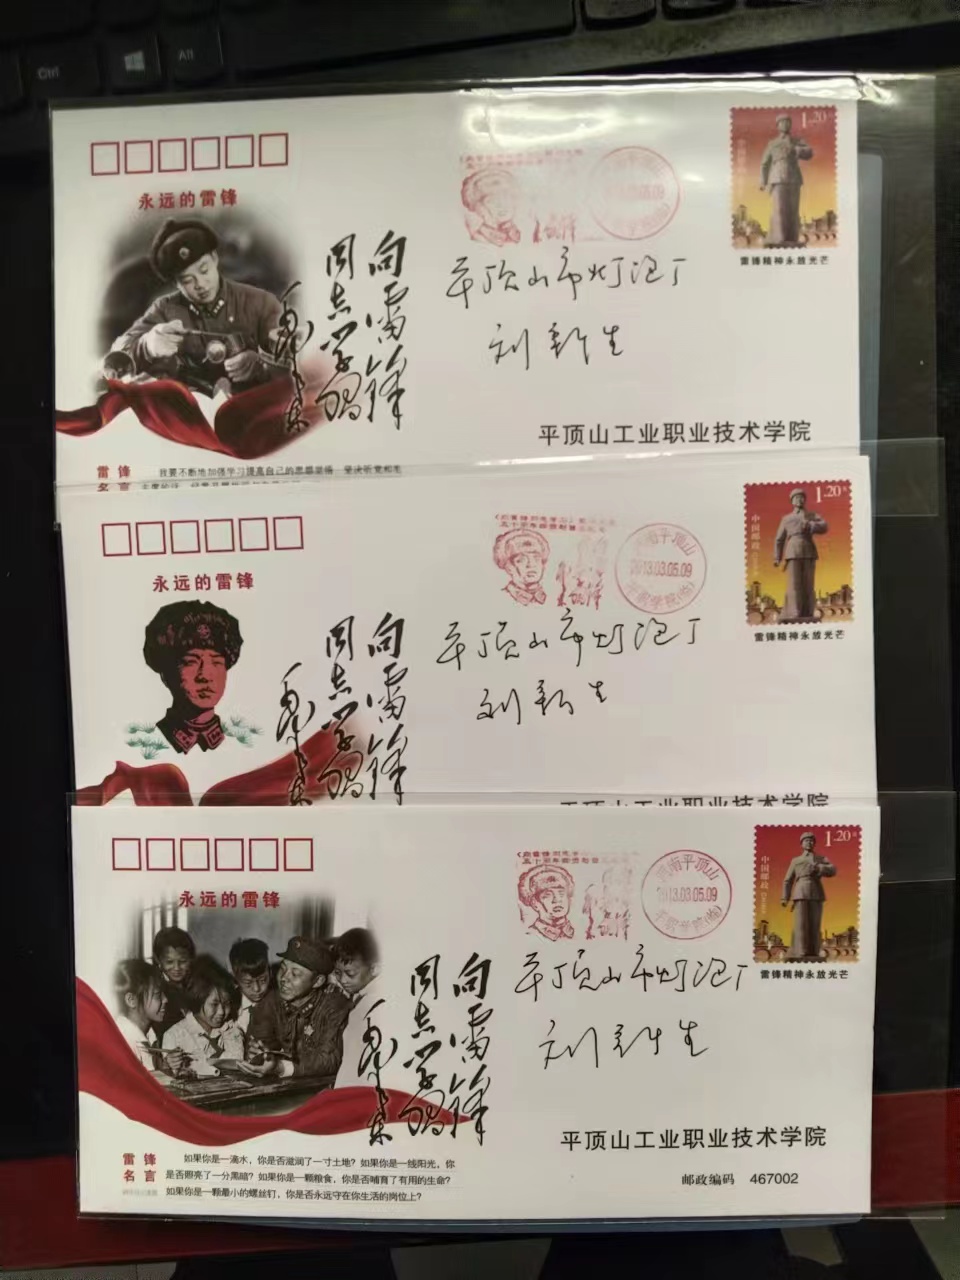 Ctrl
Alt
永远的雷锋
向雷锋
同志学习
毛泽东
1.20元
中国邮政
雷锋精神永放光芒
平顶山市灯泡厂
刘新生
平顶山工业职业技术学院
雷锋
名言
我要不断地加强学习提高自己的思想觉悟 坚决听党和毛
永远的雷锋
向雷锋
同志学习
毛泽东
河南平顶山
2013.03.05.09
1.20元
中国邮政
雷锋精神永放光芒
平顶山市灯泡厂
刘新生
平顶山工业职业技术学院
永远的雷锋
向雷锋
同志学习
毛泽东
河南平顶山
2013.03.05.09
1.20元
中国邮政
雷锋精神永放光芒
平顶山市灯泡厂
刘新生
平顶山工业职业技术学院
邮政编码 467002
雷锋
名言
如果你是一滴水，你是否滋润了一寸土地？如果你是一线阳光，你
是否照亮了一分黑暗？如果你是一颗粮食，你是否哺育了有用的生命？
如果你是一颗最小的螺丝钉，你是否永远守在你生活的岗位上？